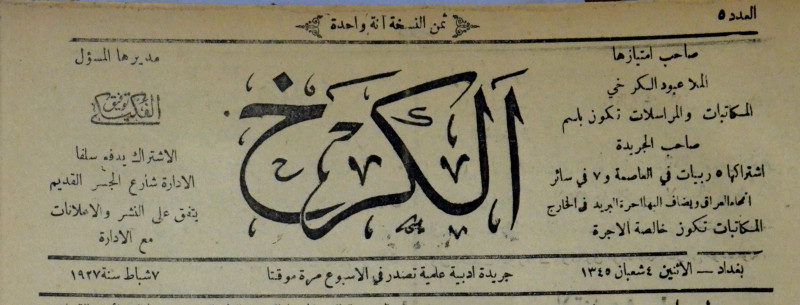 العدد ٥
ثمن النسخة آنة واحدة
صاحب امتيازها
الملا عبود الكرخي
المكاتبات والمراسلات تكون باسم
صاحب الجريدة
اشتراكها ٥ ربيات في العاصمة و ٧ في سائر
انحاء العراق ويضاف اليها اجرة البريد في الخارج
المكاتبات تكون خالصة الاجرة
الكرخ
مديرها المسؤل
توفيق الفكيكي
الاشتراك يدفع سلفا
الادارة شارع الجسر القديم
يتفق على النشر والاعلانات
مع الادارة
بغداد — الاثنين ٤ شعبان ١٣٤٥
جريدة ادبية علمية تصدر في الاسبوع مرة موقتا
٧ شباط سنة ١٩٢٧